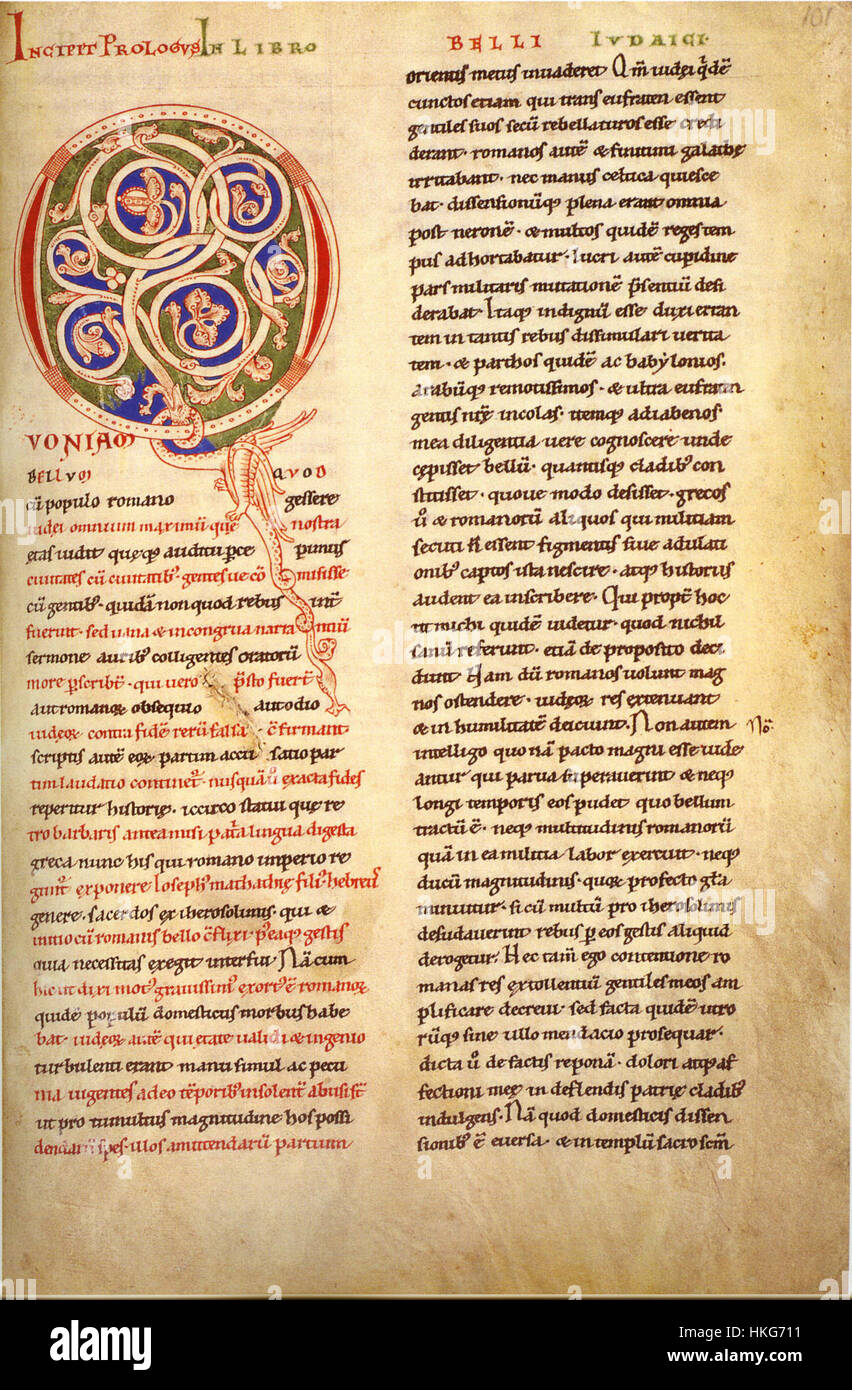 INCIPIT PROLOGUS IN LIBRO
BELLI IUDAICI·
101
QVONIAM
BELLVM QVOD
cū populo romano gessere
iudei omnium maximū que nostra
ętas uidit quęq; auditu percepimus
ciuitates cū ciuitatib; gentesue cōmisisse
cū gentib; quidā non quod rebus int̄
fuerint · sed uana & incongrua narrantiū
sermone aurib; colligentes oratorū
more pscribt̄ · qui uero psto fuert̄
aut romanoꝝ obsequio aut odio
iudeoꝝ contra fidē rerū falsa c̄firmant
scriptis autē eoꝝ partim accusatio par
tim laudatio continet̄ · nusquā ū exacta fides
reperitur historię · iccirco statui quę re
tro barbaris antea misi patria lingua digesta
greca nunc his qui romano imperio re
gunt̄ exponere Ioseph; mathathię fili; hebreus
genere · sacerdos ex iherosolimis · qui &
initio cū romanis bello c̄flixi p̄eaq; gestis
quia necessitas exegit interfui · Nā cum
hic ut dixi mot; grauissim; exort; ē romanoꝝ
quidē populū domesticus morbus habe
bat · iudeoꝝ autē qui ętate ualidi & ingenio
turbulenti erant manu simul ac pecu
nia uigentes adeo tēporib; insolent̄ abusi st̄
ut pro tumultus magnitudine hos possi
dendarū spes · illos amittendarū partium
orientis metus inuaderet Qm̄ iudęi qdē
cunctos etiam qui trans eufraten essent
gentiles suos secū rebellaturos esse credi
derant · romanos autē & finitimi galathę
irritabant · nec manus celtica quiesce
bat · dissensionūq; plena erant omnia
post neronē · & multos quidē reges tem
pus adhortabatur · lucri autē cupidine
pars militaris mutationē p̄sentiū desi
derabat Itaq; indignū esse duxi erran
tem in tantis rebus dissimulari uerita
tem · & parthos quidē ac babylonios ·
arabūq; remotissimos · & ultra eufraten
gentis nr̄ę incolas · itemq; adiabenos
mea diligentia uere cognoscere unde
cępisset bellū · quantisq; cladib; con
stitisset · quoue modo desisset · grecos
ū & romanorū aliquos qui militiam
secuti n̄ essent figmentis siue adulati
onib; captos ista nescire · atq; historias
audent ea inscribere · Qui propt̄ hoc
ut michi quidē uidetur · quod nichil
sanū referunt · etiā de proposito deci
dunt Nam dū romanos uolunt mag
nos ostendere · iudęoꝝ res extenuant
& in humilitatē deiciunt · Non autem
intelligo quo nā pacto magni esse uide
antur qui parua superauerint & neq;
longi temporis eos pudet quo bellum
tractū ē · neq; multitudinis romanorū
quā in ea militia labor exercuit · neq;
ducū magnitudinis · quoꝝ profecto gla
minuitur · si cū multū pro iherosolimis
desudauerint rebus p eos gestis aliquid
derogetur · Hec tam̄ ego contentione ro
manas res extollentiū gentiles meos am
plificare decreui · sed facta quidē utro
rūq; sine ullo mendacio prosequar ·
dicta ū de factis reponā · dolori atq; af
fectioni meę in deflendis patrię cladib;
indulgens · Nā quod domesticis dissen
sionib; ē euersa · & in templū sacro scm̄
alamy
Image ID: HKG711
www.alamy.com